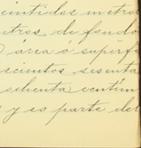 eintidos metros
etros de fondo
área ó superfi
scientos sesenta
ochenta centím
y es parte del